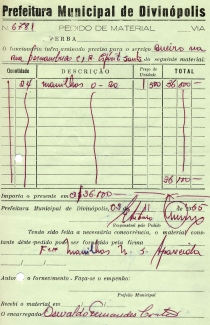 Prefeitura Municipal de Divinópolis
N. 6781 PEDIDO DE MATERIAL VIA
VERBA
O funcionário infra assinado precisa para o serviço bueiro na
rua Pernambuco c/ R. Espírito Santo do seguinte material:
Quantidade DESCRIÇÃO Preço da Unidade TOTAL
24 manilhas 0-20 1.500 36.000
36.000
Importa o presente em 36.000
Prefeitura Municipal de Divinópolis, de 1965
Responsável pelo Pedido
Tendo sido feita a necessária concorrência, o material constante
deste pedido deve ser fornecido pela firma
Manilhas N. S. Aparecida
Autorizo o fornecimento. Faça-se o empenho:
Prefeito Municipal
Recebi o material
O encarregado: Oswaldo Fernandes